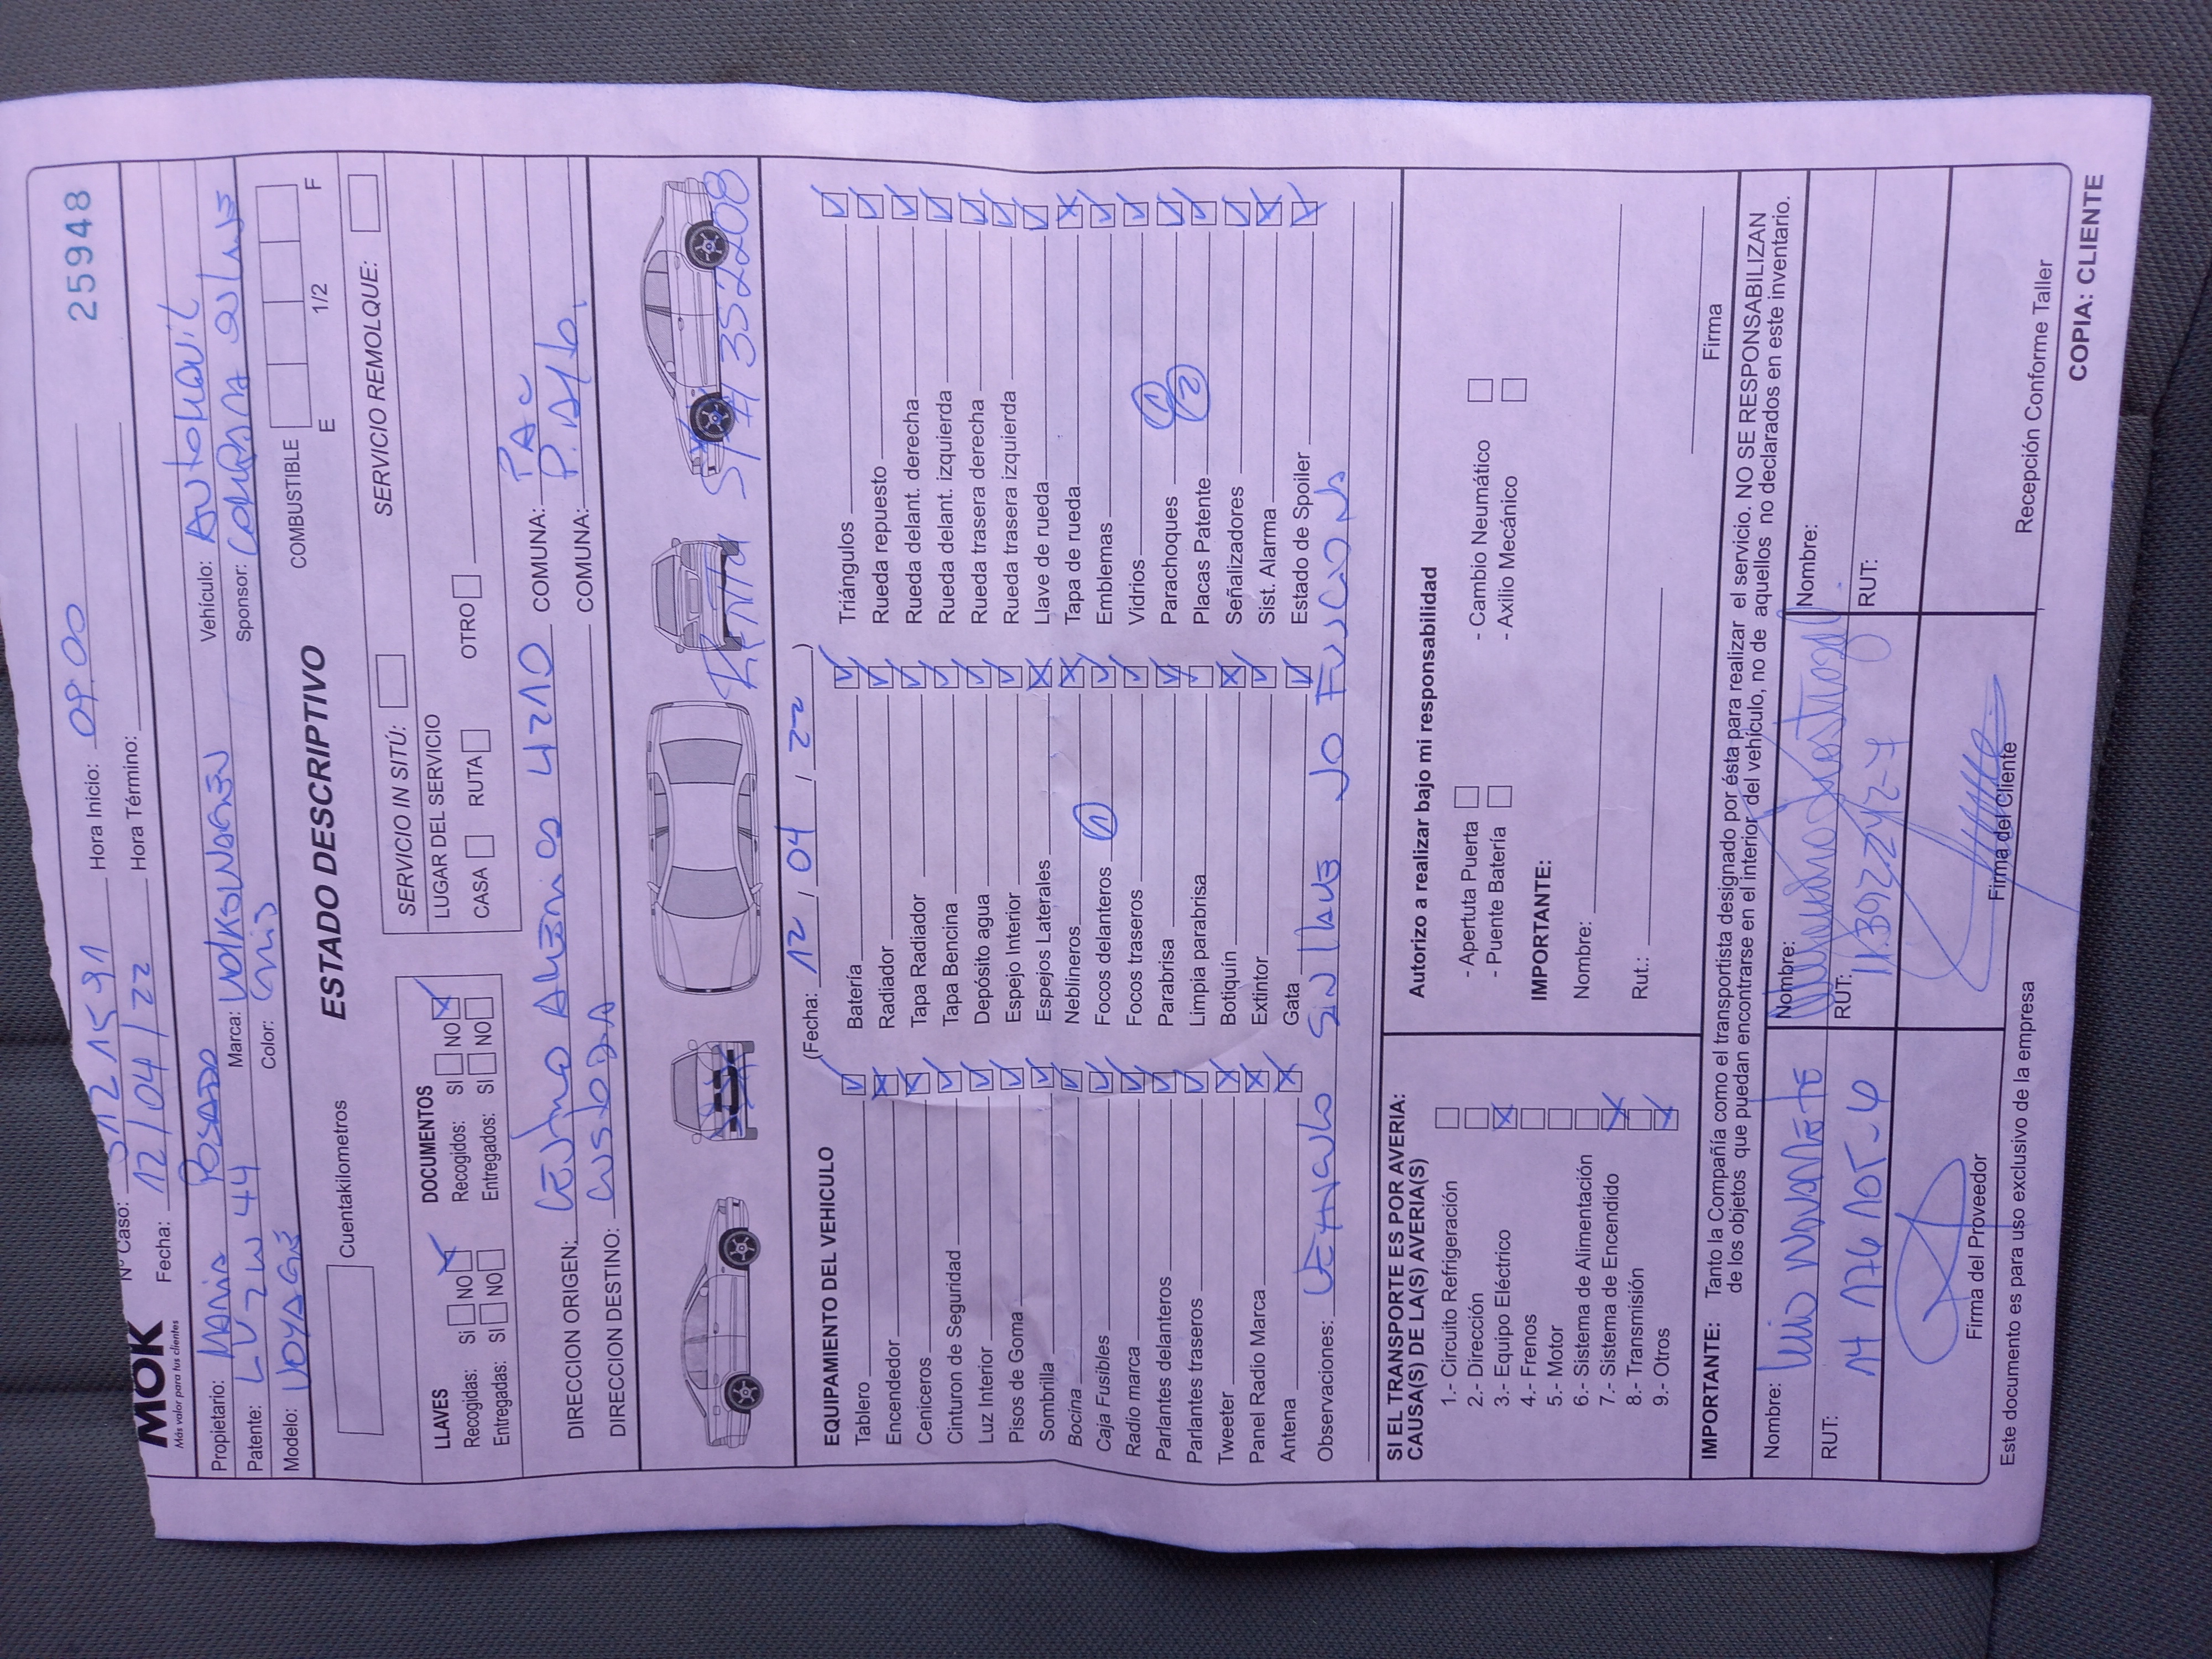 25948
MOK
Más valor para tus clientes
N° Caso: 512 15 91 Hora Inicio: 09:00
Fecha: 12/04/22 Hora Término:
Propietario: MARIA ROSADO Vehículo: AUTOMOVIL
Patente: LV ZW 44 Marca: VOLKSWAGEN Sponsor:
Modelo: VOYAGE Color: GRIS
ESTADO DESCRIPTIVO
COMBUSTIBLE
E 1/2 F
Cuentakilometros
SERVICIO IN SITÚ: SERVICIO REMOLQUE:
LUGAR DEL SERVICIO
CASA RUTA OTRO
LLAVES DOCUMENTOS
Recogidas: SI NO X Recogidos: SI NO X
Entregadas: SI NO Entregados: SI NO
DIRECCION ORIGEN: 4210 COMUNA: PAC
DIRECCION DESTINO: CUSTODIA COMUNA:
EQUIPAMIENTO DEL VEHICULO (Fecha: 12 / 04 / 22)
Tablero ✓ Batería ✓ Triángulos ✓
Encendedor X Radiador ✓ Rueda repuesto ✓
Ceniceros X Tapa Radiador ✓ Rueda delant. derecha ✓
Cinturon de Seguridad ✓ Tapa Bencina ✓ Rueda delant. izquierda ✓
Luz Interior ✓ Depósito agua ✓ Rueda trasera derecha ✓
Pisos de Goma ✓ Espejo Interior ✓ Rueda trasera izquierda ✓
Sombrilla ✓ Espejos Laterales X Llave de rueda ✓
Bocina ✓ Neblineros X Tapa de rueda X
Caja Fusibles ✓ Focos delanteros 1 ✓ Emblemas ✓
Radio marca ✓ Focos traseros ✓ Vidrios ✓
Parlantes delanteros ✓ Parabrisa ✓ Parachoques 1 ✓
Parlantes traseros ✓ Limpia parabrisa ✓ Placas Patente 2 ✓
Tweeter X Botiquín X Señalizadores ✓
Panel Radio Marca X Extintor ✓ Sist. Alarma X
Antena X Gata ✓ Estado de Spoiler X
Observaciones: VEHICULO SIN LLAVE NO FUNCIONA
SI EL TRANSPORTE ES POR AVERIA:
CAUSA(S) DE LA(S) AVERIA(S)
1.- Circuito Refrigeración
2.- Dirección
3.- Equipo Eléctrico X
4.- Frenos
5.- Motor
6.- Sistema de Alimentación
7.- Sistema de Encendido X
8.- Transmisión
9.- Otros X
Autorizo a realizar bajo mi responsabilidad
- Apertuta Puerta - Cambio Neumático
- Puente Batería - Axilio Mecánico
IMPORTANTE:
Nombre:
Rut.: Firma
IMPORTANTE: Tanto la Compañía como el transportista designado por ésta para realizar el servicio. NO SE RESPONSABILIZAN
de los objetos que puedan encontrarse en el interior del vehículo, no de aquellos no declarados en este inventario.
Nombre: LUIS NAVARRETE Nombre: Nombre:
RUT: 14 176 105-6 RUT: RUT:
Firma del Proveedor Firma del Cliente Recepción Conforme Taller
Este documento es para uso exclusivo de la empresa
COPIA: CLIENTE